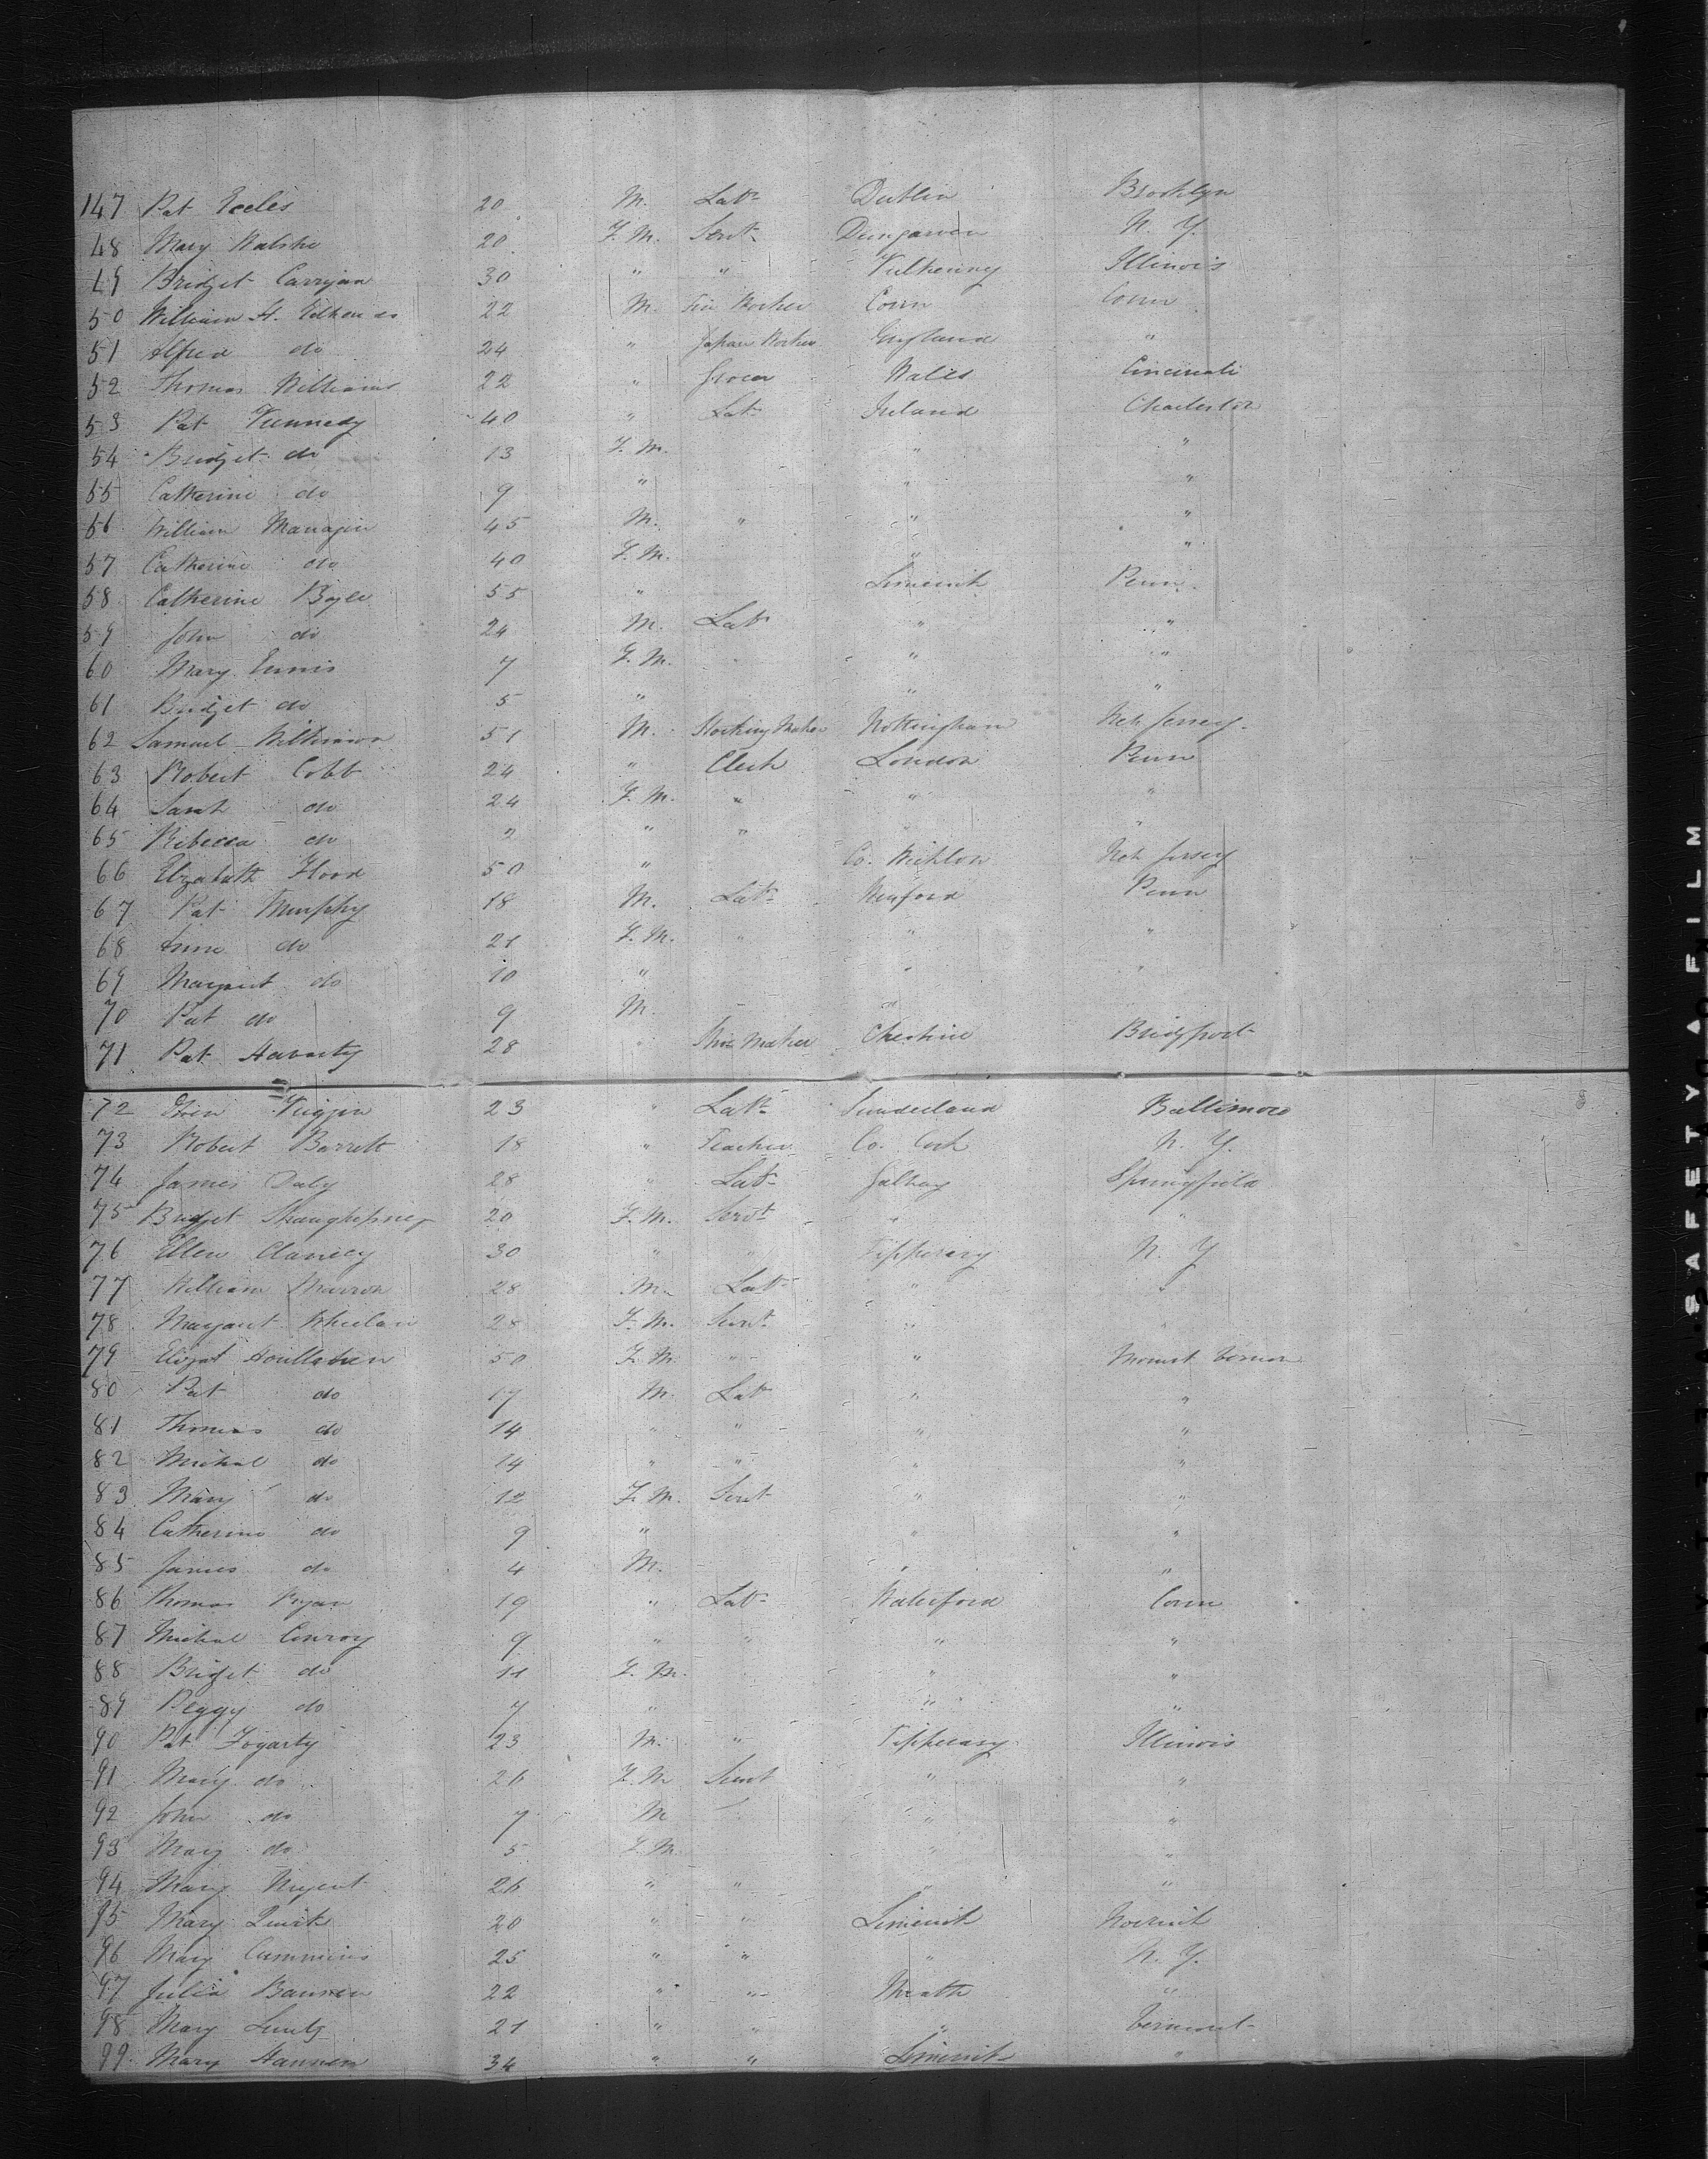 147 Pat Eccles 20 M. Labr Dublin Brooklyn
48 Mary Walshe 20 F. M. Servt Dungarvin N. Y.
49 Bridget Carrigan 30 " " Illinois
50 William H. 22 M. Tin Worker Conn Conn
51 Alfred do 24 " Japan Worker England "
52 Thomas Williams 22 " Grocer Wales Cincinati
53 Pat Kennedy 40 " Labr Ireland Charleston
54 Bridget do 13 F. M. " "
55 Catherine do 9 " " "
56 William Managin 45 M. " " "
57 Catherine do 40 F. M. " "
58 Catherine Boyle 55 " Limerick Penn.
59 John do 24 M. Labr " "
60 Mary Ennis 7 F. M. " "
61 Bridget do 5 " " "
62 Samuel Wilkinson 51 M. Stocking Maker Nottingham New Jersey
63 Robert Cobb 24 " Clerk London Penn
64 Sarah do 24 F. M. " " "
65 Rebecca do 2 " " " "
66 Elizabeth Flood 50 " Co. Wicklow New Jersey
67 Pat Murphy 18 M. Labr Wexford Penn
68 Anne do 21 F. M. " " "
69 Margaret do 10 " " "
70 Pat do 9 M. "
71 Pat Haverty 28 " Shoe Maker Cheshire Bridgport
72 23 " Labr Sunderland Baltimore
73 Robert Barrett 18 " Teacher Co. Cork N. Y.
74 James Daly 28 " Labr Galway Springfield
75 Bridget Shaughessney 20 F. M. Servt " "
76 Ellen Clancey 30 " " Tipperary N. Y
77 William 28 M. Labr " "
78 Margaret Wheelan 28 F. M. Servt " "
79 Elizat Houllahan 50 F. M. " " Mount Vernon
80 Pat do 17 M. Labr " "
81 Thomas do 14 " " " "
82 Michal do 14 " " " "
83 Mary do 12 F. M. Servt " "
84 Catherine do 9 " " "
85 James do 4 M. " "
86 Thomas Ryan 19 " Labr Waterford Conn
87 Michal Conroy 9 " " " "
88 Bridget do 11 F. M. " "
89 Peggy do 7 " " "
90 Pat Fogarty 23 M. " Tipperary Illinois
91 Mary do 26 F. M Servt " "
92 John do 7 M " "
93 Mary do 5 F. M. " "
94 Mary Nugent 26 " " " "
95 Mary Quirk 20 " " Limerick Norwich
96 Mary Cummins 25 " " " N. Y.
97 Julia Bannon 22 " " Meath "
98 Mary 21 " " " Vermont
99 Mary Hannon 34 " " Limerick "
SAFETY A FILM